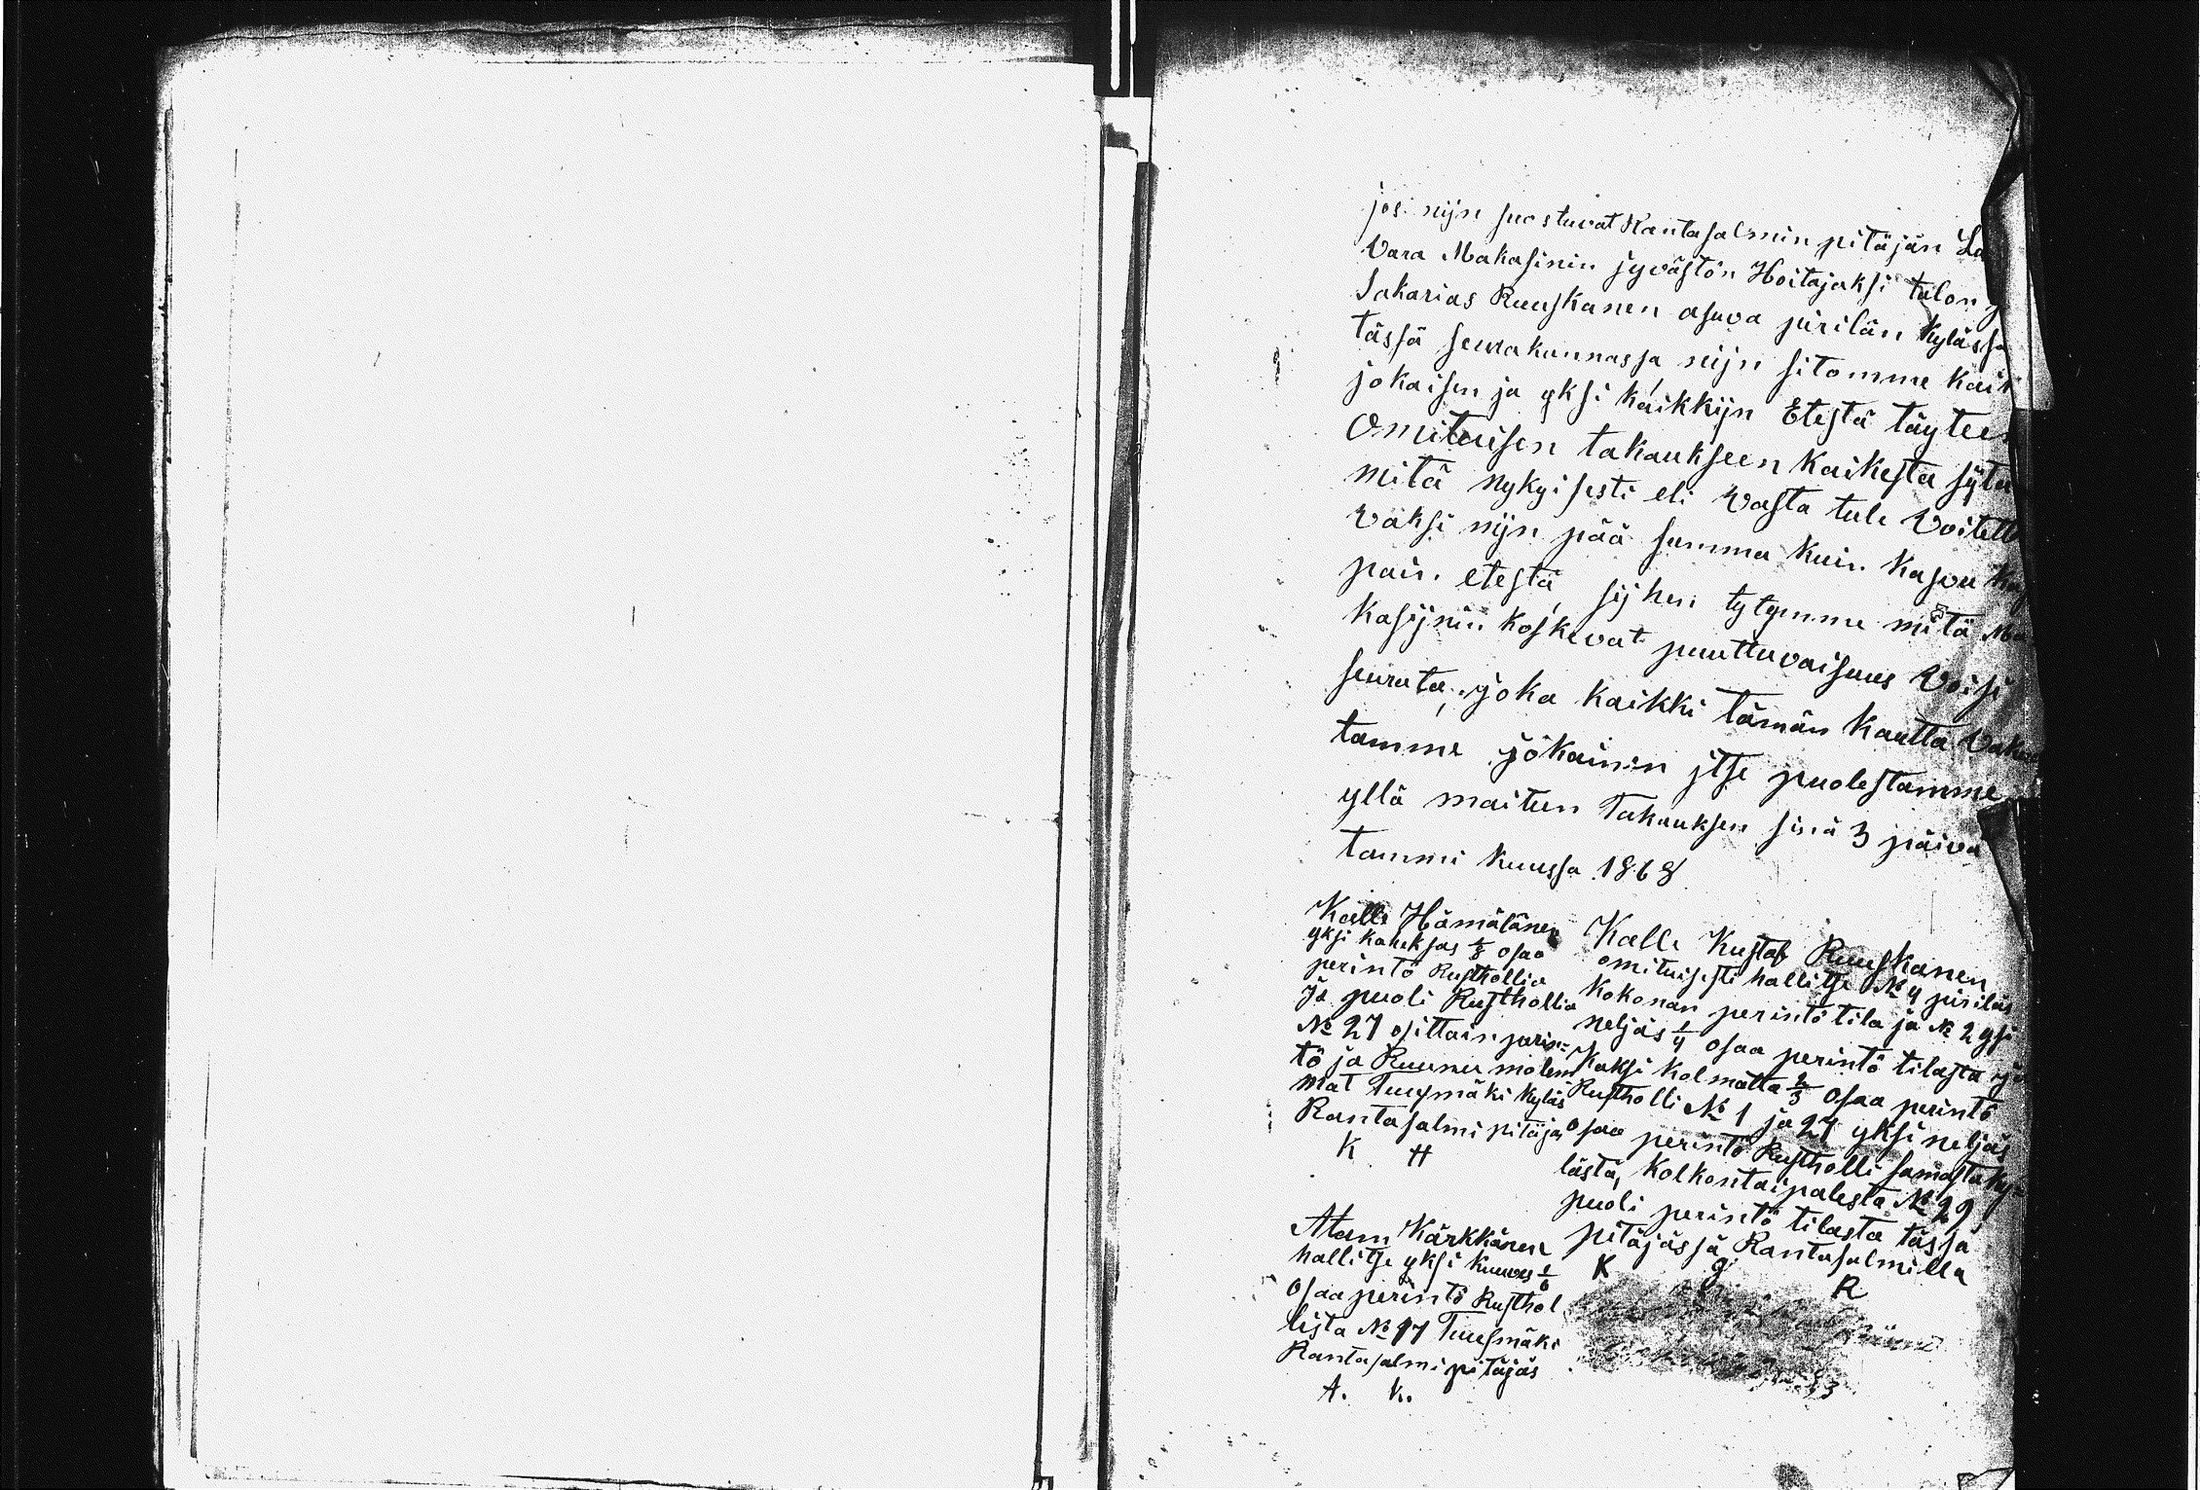 jos nijn suostuvat Rantasalmin pitäjän La
Vara Makasinin jyvästön Hoitajaksi talon
Sakarias Ruuskanen asuva pirilän kylässä
tässä seurakunnassa nijn sitomme kai
jokaisen ja yksi kaikkijn Etestä täytee
Omituisen takaukseen kaikesta sijtä
mitä nykyisesti eli vasta tule Voitett
vaksi nijn pää summa kuin kasvu
pain etestä, sijhen tytymme mitä Ma
kasijnii koskevat puuttuvaisuus Voisi
seurata, joka kaikki tämän kautta Vaku
tamme jokainen jtse puolestamme
yllä maitun Takauksen sinä 3 päivä
tammi kuussa 1868
Kalle Hämälänen
yksi kaheksas 1/8 osaa
perintö Rusthollia
ja puoli Rusthollia
No 27 osittain perin=
tö ja Ruunu molem
mat Tuusmäki kyläs
Rantasalmi pitäjä
K H
Kalle Kustaf Ruuskanen
omituisesti hallitse No 4 piriläs
kokonan perintö tila ja No 2 yksi
neljäs 1/4 osaa perintö tilasta ja
kaksi kolmatta 2/3 osaa perintö
Rustholli No 1 ja 27 yksi neljäs
osaa perintö Rustholli samasta ky=
lästä, Kolkontaipalesta No 29
puoli perintö tilasta tässä
pitäjässä Rantasalmilla
K g R
Atam Kärkkänen
hallitse yksi kuuves 1/6
osaa perintö Rusthol
lista No 17 Tuusmäki
Rantasalmi pitäjäs
A. K.